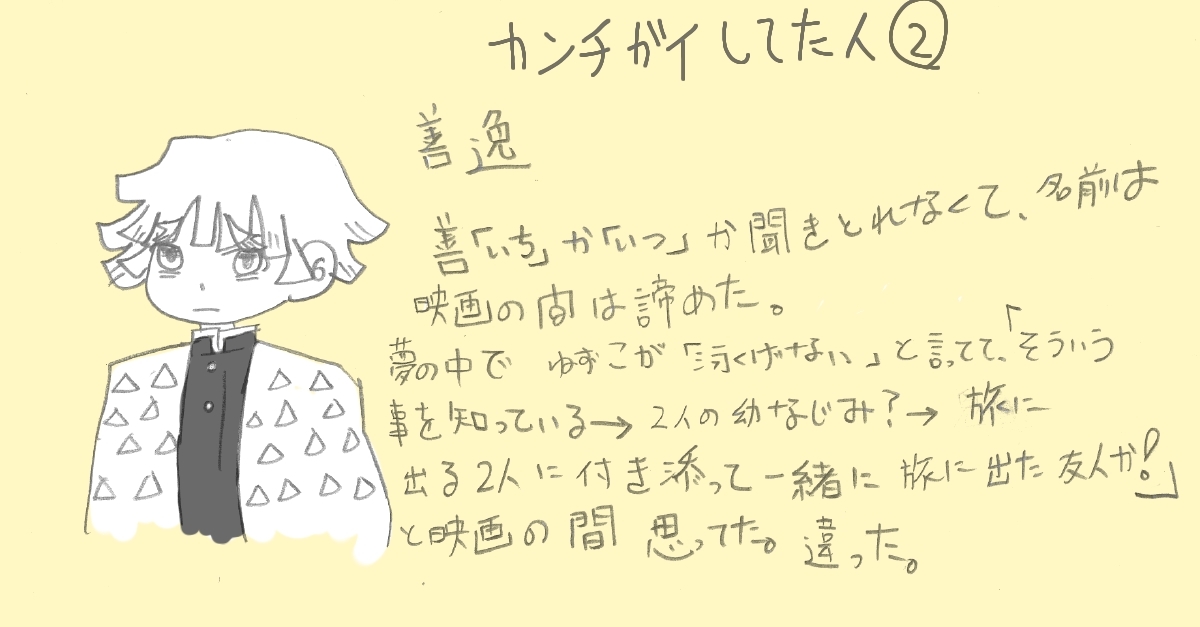 カンチガイしてた人②
善逸
善「いち」か「いつ」か聞きとれなくて、名前は
映画の間は諦めた。
夢の中で ねずこが「泳げない」と言ってて、「そういう
事を知っている→2人の幼なじみ?→旅に
出る2人に付き添って一緒に旅に出た友人か!」
と映画の間 思ってた。違った。